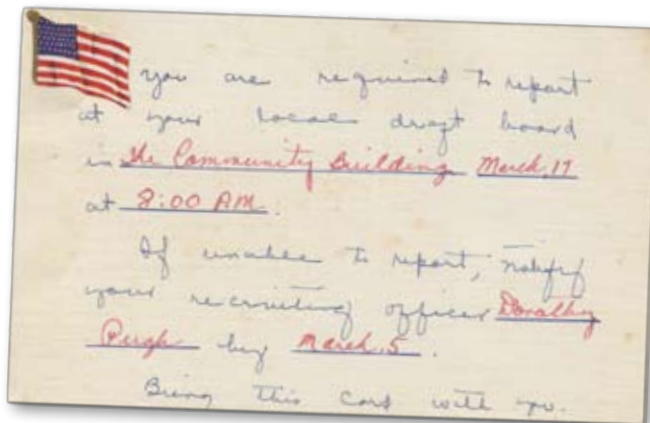 you are required to report
at your local draft board
in the Community Building March, 17
at 8:00 AM.
If unable to report, notify
your recruiting officer Dorothy
Pugh by March, 5.
Bring this card with you.